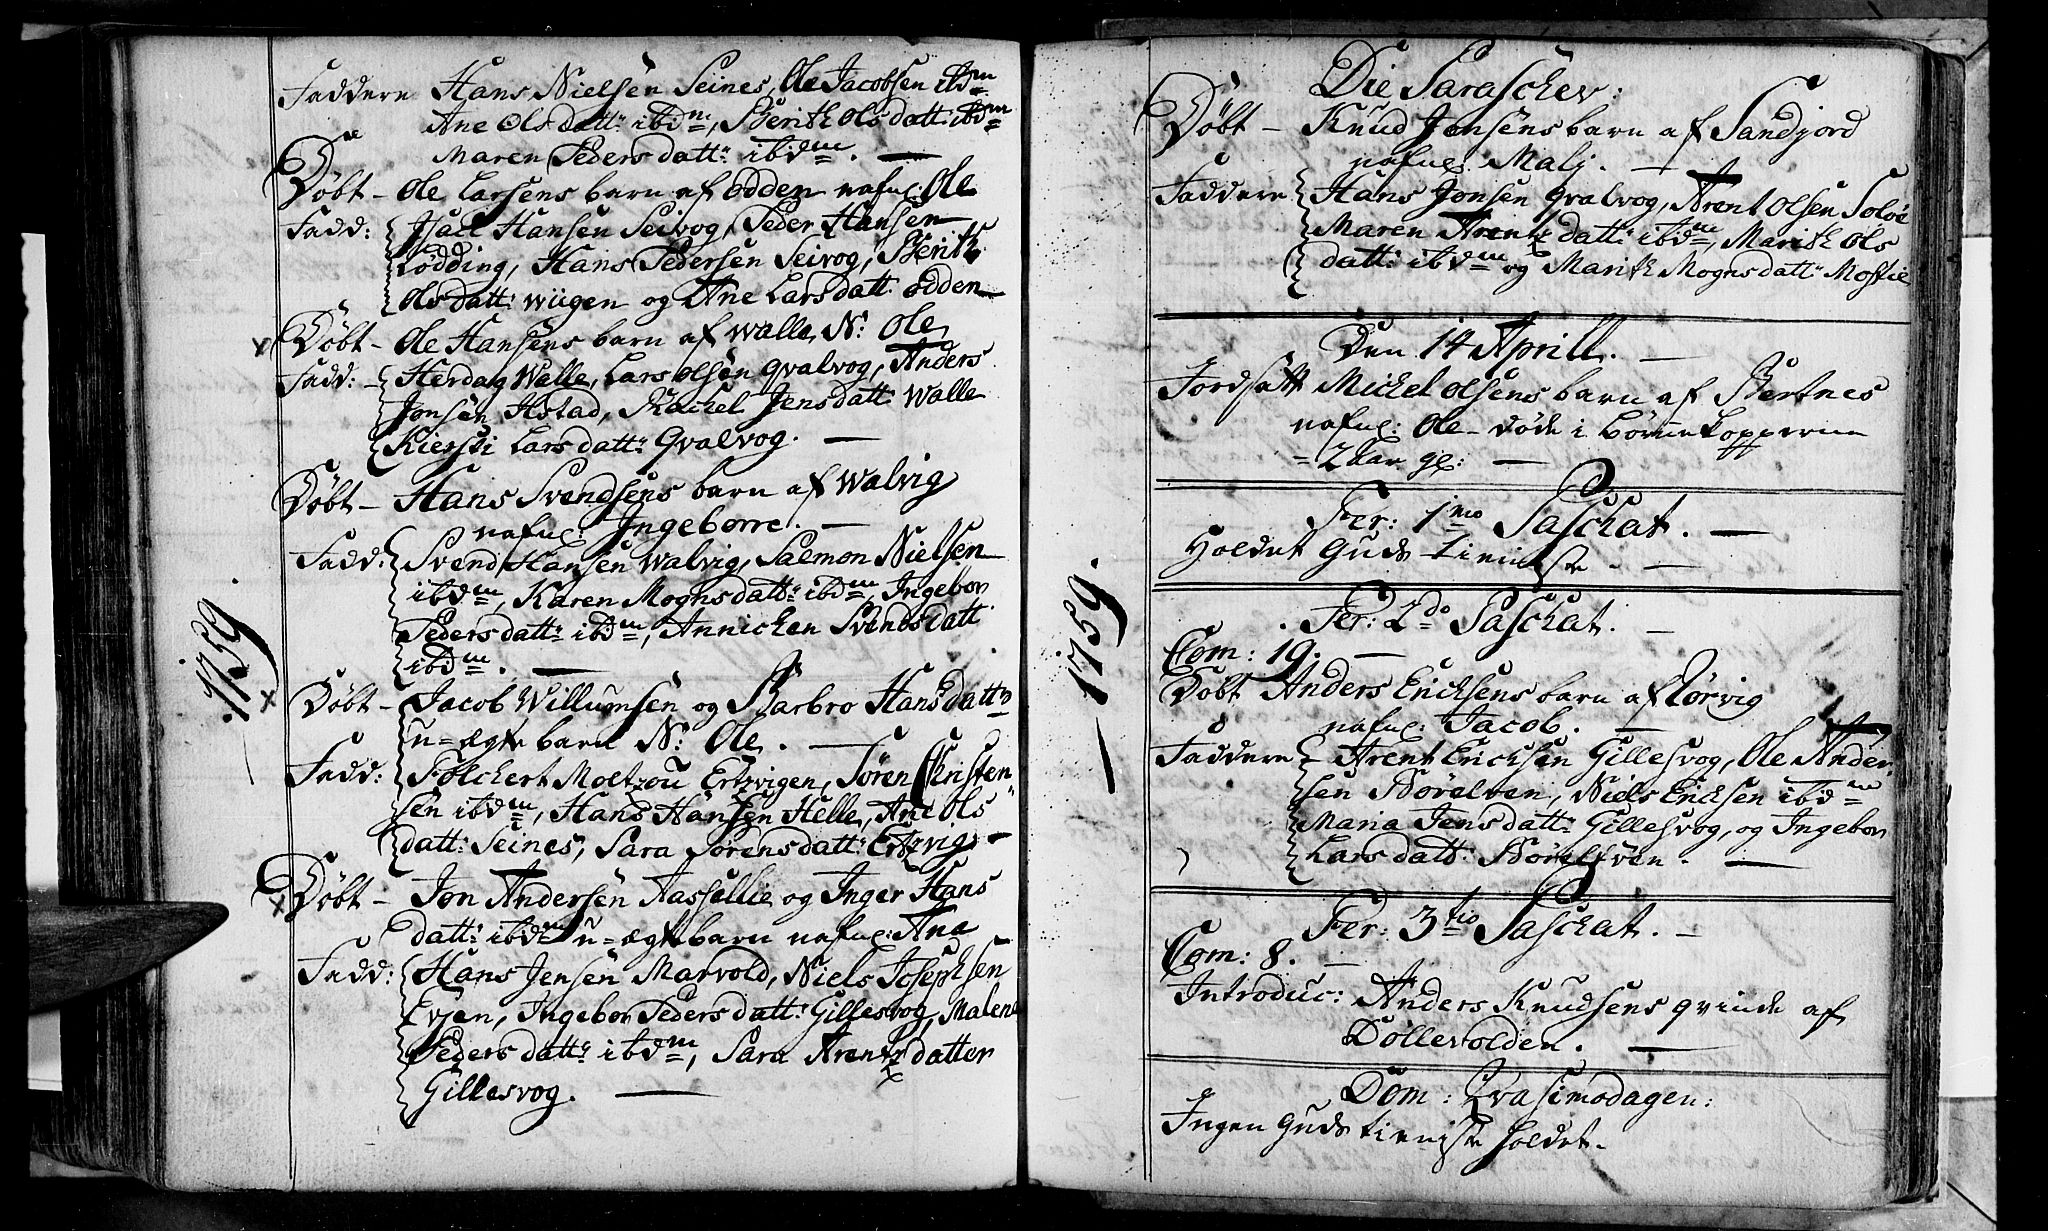 Faddere Hans Nielsen Seines, Ole Jacobsen ibdm
Ane Olsdatt: ibdm, Berith Olsdatt: ibdm
Maren Pedersdatt: ibdm. —
Døbt – Ole Larsens barn af Odden nafnl: Ole
Fadd: Isac Hansen Seivog, Peder Hansen
Lødding, Hans Pedersen Seivog, Berith
Olsdatt: Wiigen og Ane Larsdatt: Odden
Døbt – Ole Hansens barn af Walle, N: Ole
Fadd: – Herdag Walle, Lars Olsen Qvalvog, Anders
Jonsen Hstad, Rachel Jensdatt: Walle
Kiersti Larsdatt: Qvalvog. —
Døbt – Hans Svendsens barn af Walvig
nafnl: Ingeborre. —
Fadd: Svend Hansen Walvig, Salmon Nielsen
ibdm, Karen Mognsdatt: ibdm, Ingebor
Pedersdatt: ibdm, Annichen Svendsdatt
ibdm. —
1759
Døbt – Jacob Willumsen og Barbro Hansdatt:
u=ægte barn N: Ole. —
Fadd: Folchert Moltzou Ertzvigen, Søren Christen
sen ibdm, Hans Hansen Helle, Ane Ols
datt: Seines, Sara Sørensdatt: Ertzvig –
Døbt – Jon Andersen Aasselie og Inger Hans
datt: ibdm u=ægte barn nafnl: Ane
Fadd: Hans Jensen Marvold, Niels Josephsen
Evjen, Ingebor Pedersdatt: Gillesvog, Malene
Pedersdatt: ibdm, Sara Arentzdatter
Gillesvog. —
Die Paraschev:
Døbt – Knud Jensens barn af Sandjord
nafnl: Malj. —
Faddere Hans Jonsen Qvalvog, Arent Olsen Soløe
Maren Arentzdatt: ibdm, Marith Ols
datt: ibdm og Marith Mognsdatt: Mostie
Den 14 Aprill. —
Jordsatt Michel Olsens barn af Bertnes
nafnl: Ole – døde i børnekopperne
– 2 Aar gl: —
Fer: 1mo Paschat. —
Holdet Guds Tieniste. —
1759.
Fer: 2do Paschat. —
Com: 19. —
Døbt Anders Ericksens barn af Lørvig
nafnl: Jacob. —
Faddere – Arent Ericksen Gillesvog, Ole Ander
sen Børelven, Niels Ericksen ibdm
Maria Jensdatt: Gillesvog, og Ingebor
Larsdatt: Børelven. —
Fer: 3tio Paschat. —
Com: 8. —
Introduc: Anders Knudsens qvinde af
Døllevolden. —
Dom: Qvasimodagen:
Ingen Guds tieniste holdet.